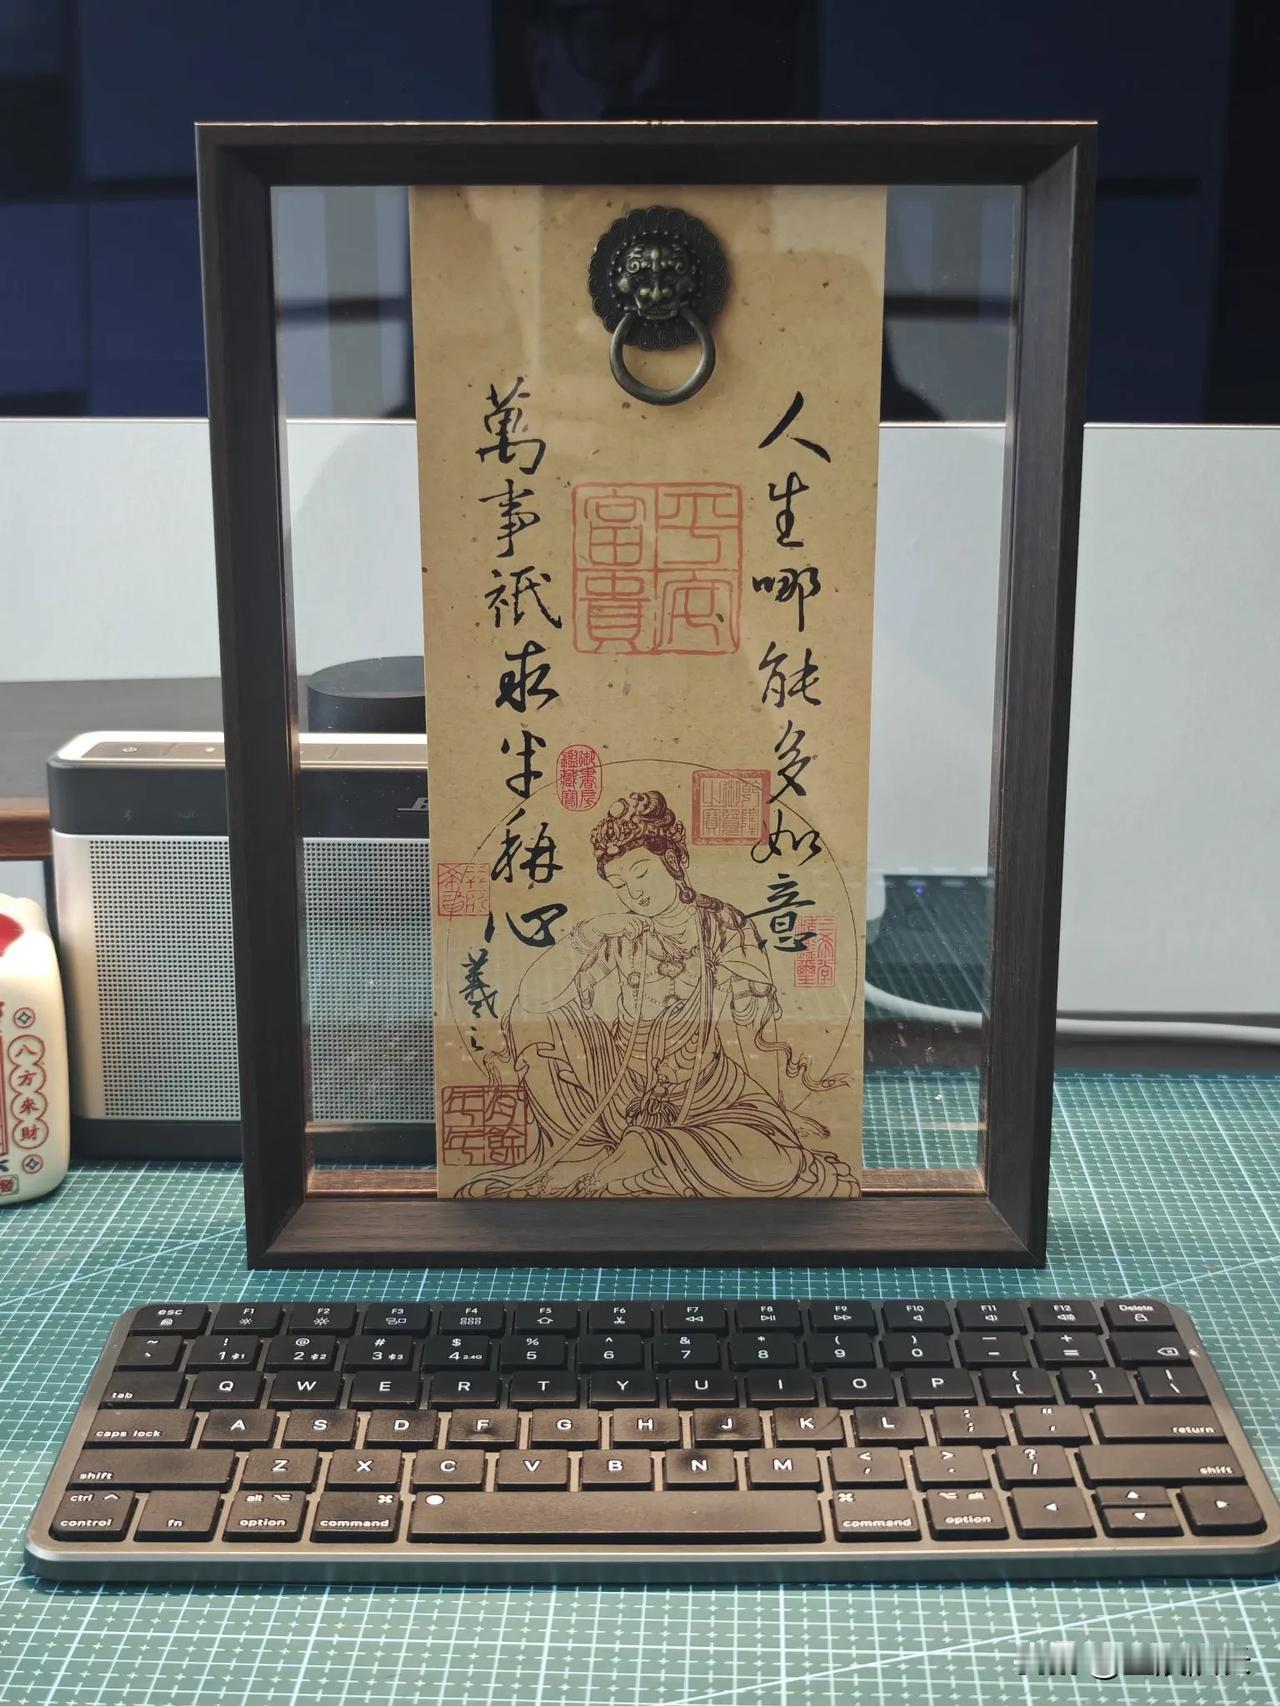 人生哪能多如意
萬事祇求半稱心
羲之
平安
富貴
御書房
鑑藏寶
乾隆
御覽
之寶
三希堂
精鑑璽
有餘
年年
八方来財
esc F1 F2 F3 F4 F5 F6 F7 F8 F9 F10 F11 F12 Delete
~ ! @ # $ % ^ & * ( ) — +
` 1 2 3 4 2.4G 5 6 7 8 9 0 - =
tab Q W E R T Y U I O P { [ } ] | \
caps lock A S D F G H J K L : ; " ' return
shift Z X C V B N M < , > . ? / shift
ctrl alt alt
control fn option command command option